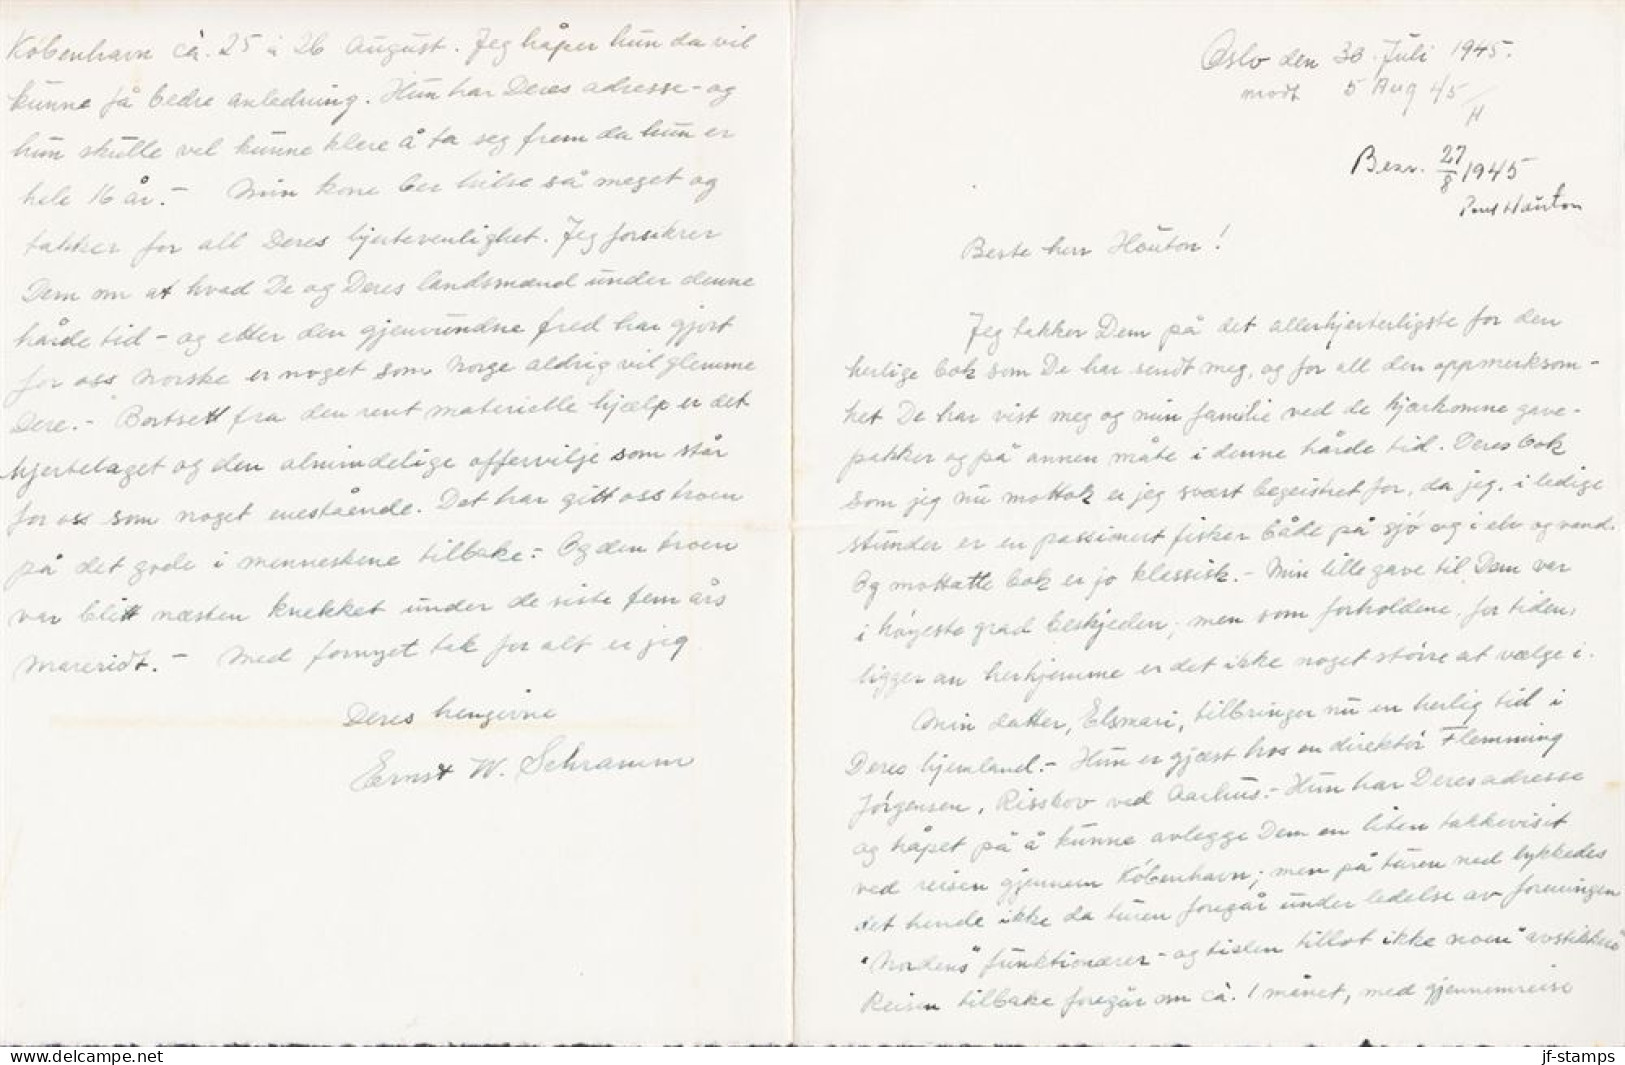 Oslo den 30. Juli 1945.
modt 5 Aug 45
H
Besv. 27/8 1945
Poul Houton
Beste herr Houton!
Jeg takker Dem på det allerhjerteligste for den
herlige bok som De har sendt meg, og for all den oppmerksom-
het De har vist meg og min familie ved de kjærkomne gave-
pakker og på annen måte i denne hårde tid. Deres bok
som jeg nu mottok er jeg svært begeistret for, da jeg, i ledige
stunder er en passionert fisker både på sjö og i elv og vand.
Og mottatte bok er jo klassisk. - Min lille gave til Dem var
i höyeste grad beskjeden; men som forholdene, for tiden,
ligger an herhjemme er det ikke noget större at vælge i.
Min datter, Elsmari, tilbringer nu en herlig tid i
Deres hjemland. - Hun er gjæst hos en direktör Flemming
Jörgensen, Risskov ved Aarhus. - Hun har Deres adresse
og håpet på å kunne avlegge Dem en liten takkevisit
ved reisen gjennem Köbenhavn; men på turen ned lykkedes
det hende ikke da turen foregår under ledelse av foreningen
"Nordens" funktionærer - og tiden tillot ikke noen "avstikkere"
Reisen tilbake foregår om cà. 1 månet, med gjennemreise
Köbenhavn cà. 25 à 26 August. Jeg håper hun da vil
kunne få bedre anledning. Hun har Deres adresse - og
hun skulle vel kunne klare å ta seg frem da hun er
hele 16 år. - Min kone ber hilse så meget og
takker for all Deres hjertevenlighet. Jeg forsikrer
Dem om at hvad De og Deres landsmænd under denne
hårde tid - og etter den gjenvundne fred har gjort
for oss norske er noget som Norge aldrig vil glemme
Dere. - Bortsett fra den rent materielle hjælp er det
hjertelaget og den almindelige offervilje som står
for oss som noget enestående. Det har gitt oss troen
på det gode i menneskene tilbake. - Og den troen
var blitt næsten knekket under de siste fem års
mareridt. - Med fornyet tak for alt er jeg
Deres hengivne
Ernst W. Schramm
jf-stamps
www.delcampe.net